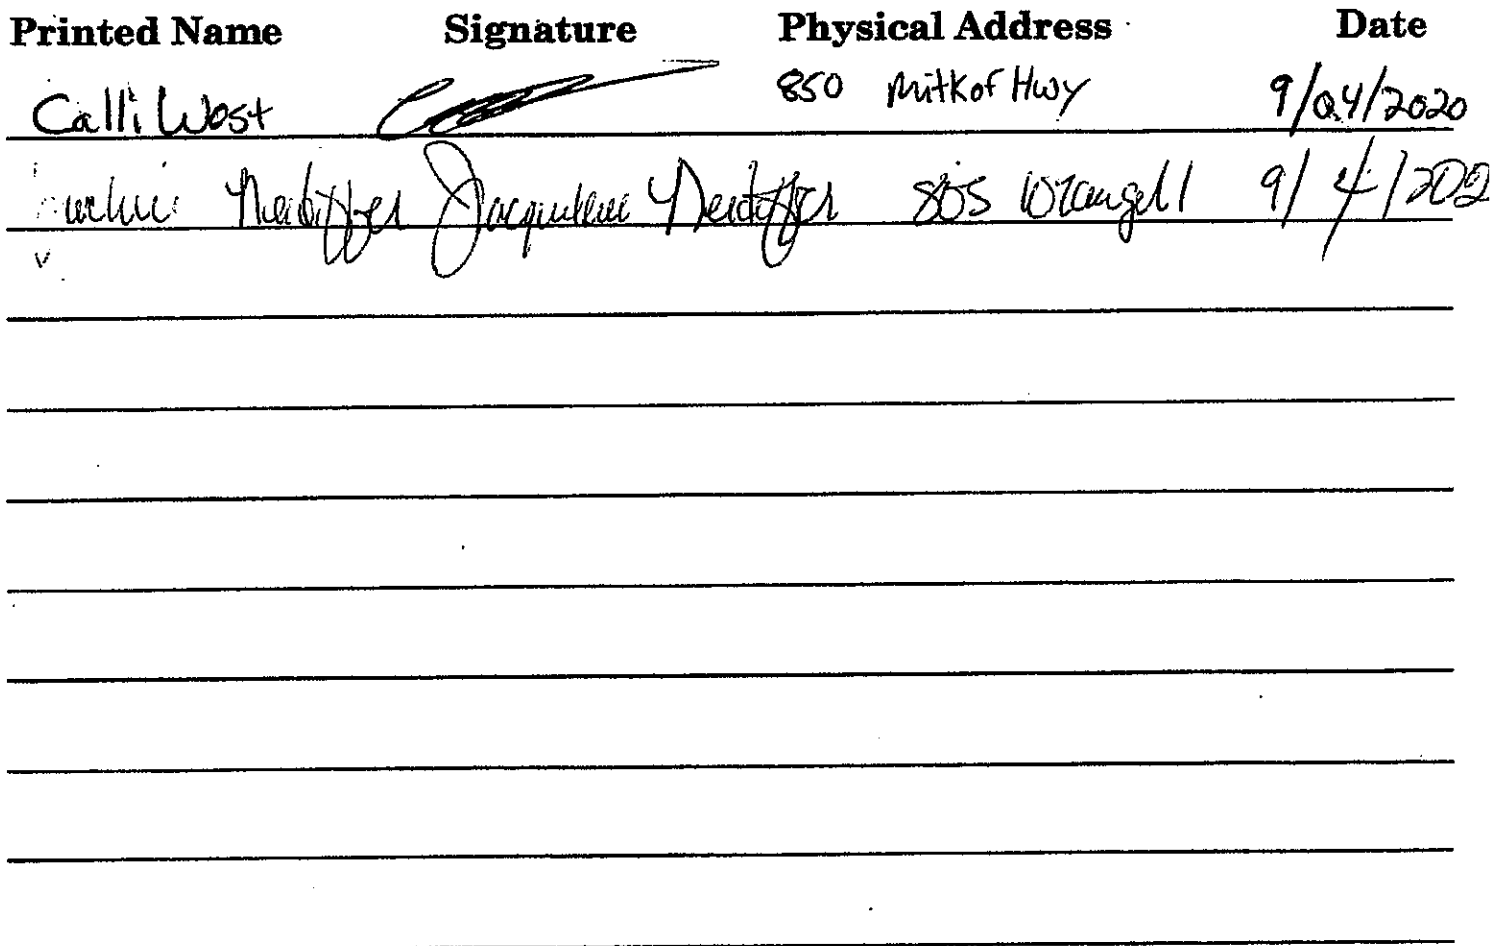 Printed Name Signature Physical Address Date
Calli West 850 Mitkof Hwy 9/04/2020
Neidiffer Jacqueline Neidiffer 805 Wrangell 9/4/202